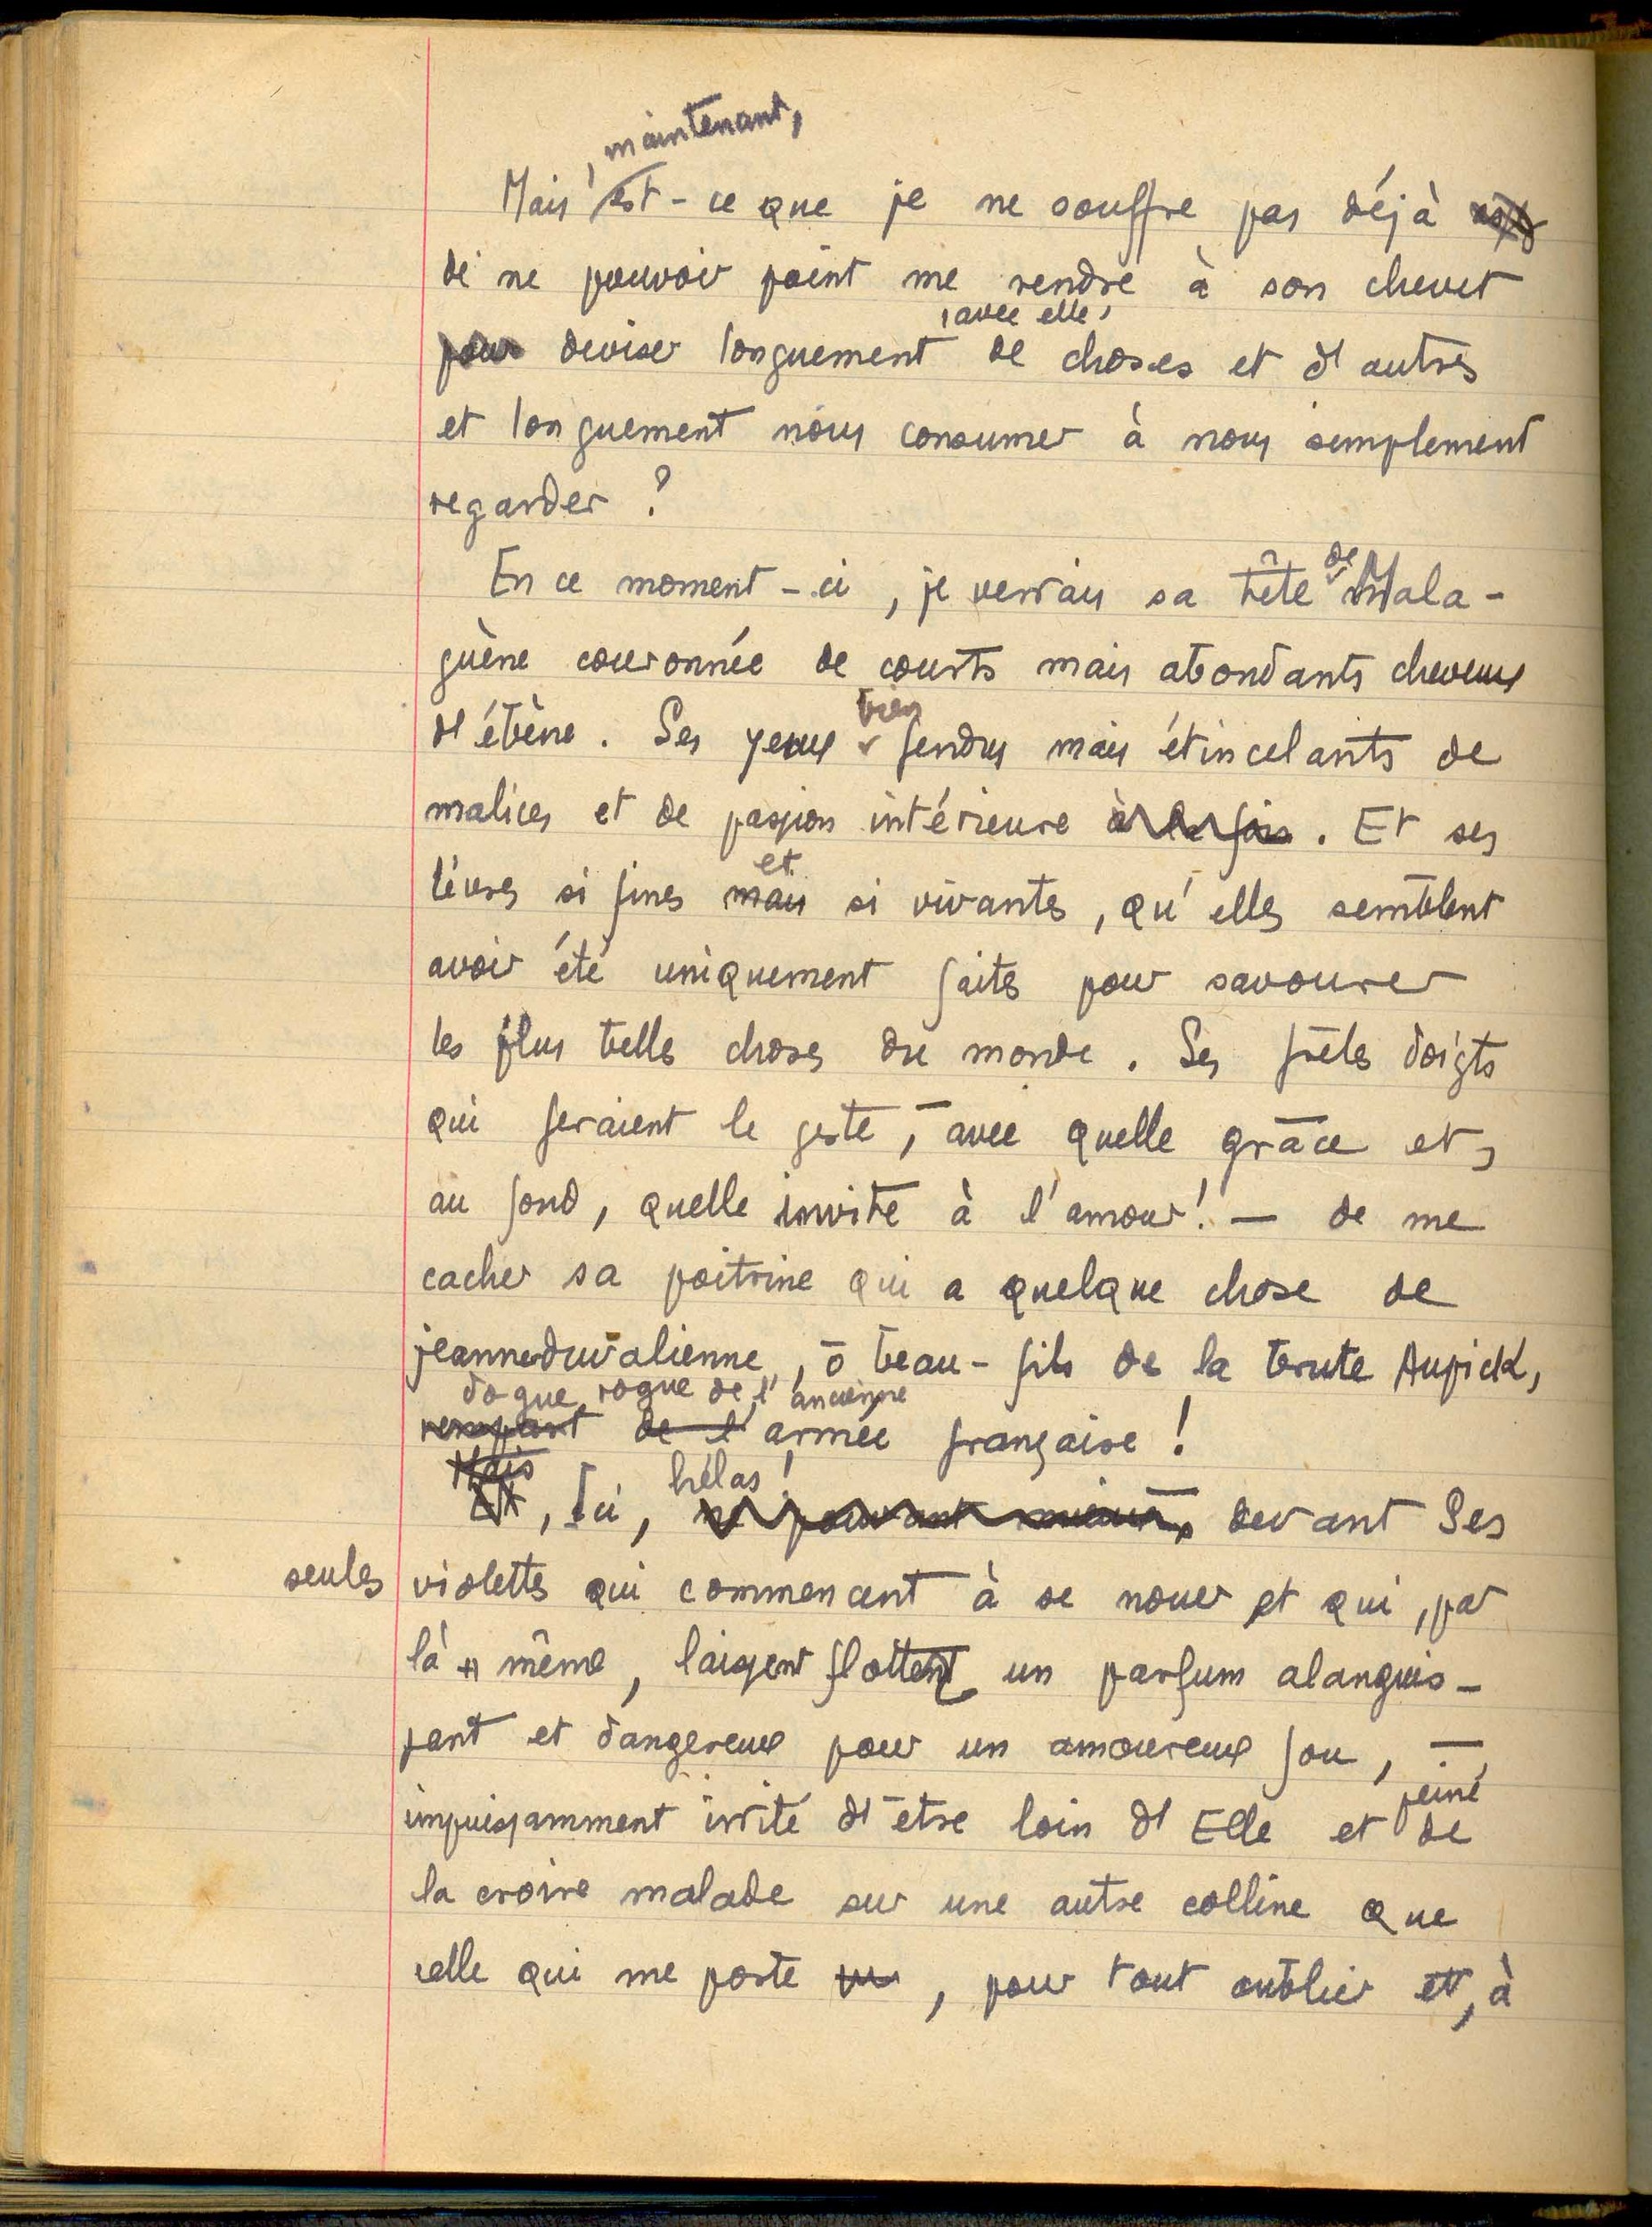 maintenant,
Mais, est-ce que je ne souffre pas déjà
de ne pouvoir point me rendre à son chevet
, avec elle,
pour deviser longuement de choses et d'autres
et longuement nous consumer à nous simplement
regarder ?
de
En ce moment-ci, je verrais sa tête Mala-
guène couronnée de courts mais abondants cheveux
bien
d'ébène. Ses yeux fendus mais étincelants de
malices et de passion intérieure à la fois. Et ses
et
lèvres si fines mais si vivantes, qu'elles semblent
avoir été uniquement faites pour savourer
les plus belles choses du monde. Ses frêles doigts
qui feraient le geste, – avec quelle grâce et,
au fond, quelle invite à l'amour ! – de me
cacher sa poitrine qui a quelque chose de
jeanneduvalienne, ô beau-fils de la brute Aupick,
dogue rogue de l'ancienne
rempart de l'armée française !
Mais hélas !
Et, Ici, ne pouvant mieux, devant Ses
seules
violettes qui commencent à se nouer et qui, par
là même, laissent flotter un parfum alanguis-
sant et dangereux pour un amoureux fou, –
peiné
impuissamment irrité d'être loin d'Elle et de
la croire malade sur une autre colline que
celle qui me porte, pour tout oublier et, à